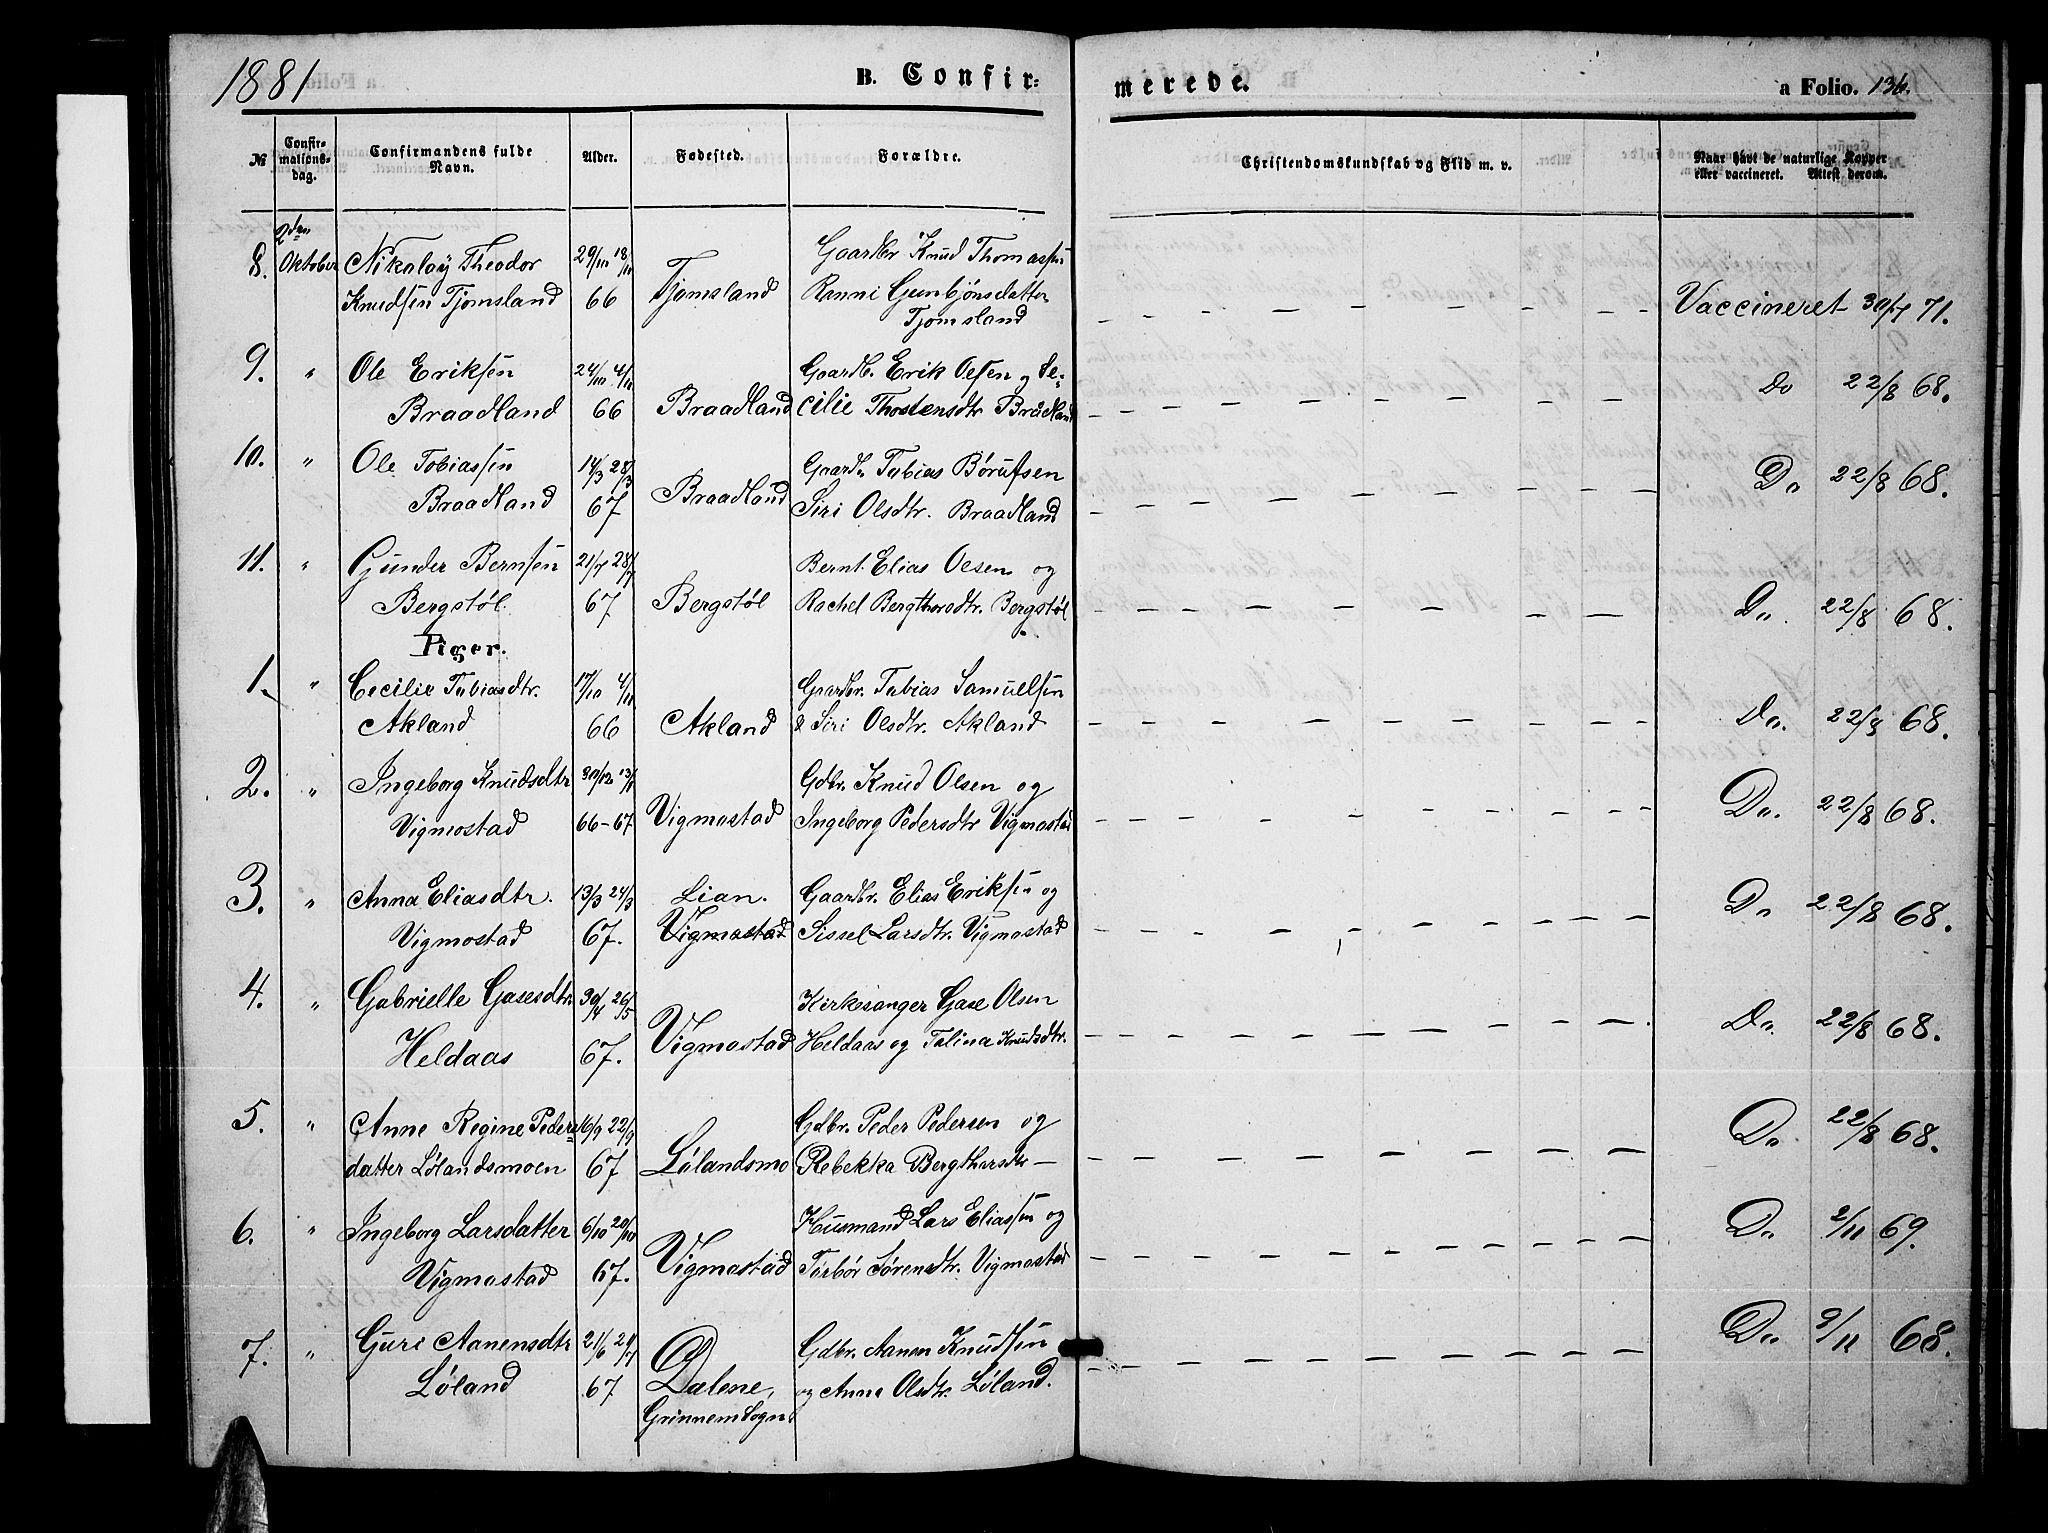 1881
B. Confir=
merede.
a Folio. 136.
№
Confir-
mations-
dag.
Confirmandens fulde
Navn.
Alder.
Fødested.
Forældre.
Christendomskundskab og Flid m. v.
Naar havt de naturlige Kopper
eller vaccineret. Attest derom.
8. 2den Oktober Nikolay Theodor 29/10 18/11 Tjomsland Gaardbr Knud Thomassen
Knudsen Tjomsland 66 Ranni Gunbjønsdatter Vaccineret 30/7 71.
Tjomsland
9. " Ole Eriksen 24/10 4/11 Gaardb. Erik Olsen og Ce-
Braadland 66 Braadland cilie Thostensdtr Brådland Do 22/8 68.
10. " Ole Tobiassen 14/3 28/3 Gaardb. Tobias Börufsen
Braadland 67 Braadland Siri Olsdtr. Braadland Do 22/8 68.
11. " Gunder Bernsen 21/7 28/7 Bernt Elias Olsen og
Bergstøl. 67 Bergstøl Rachel Bergthorsdtr. Bergstøl Do. 22/8 68.
Piger.
1. " Cecilie Tobiasdtr. 17/10 4/11 Gaardbr. Tobias Samuelsen
Akland 66 Akland & Siri Olsdtr. Akland Do. 22/8 68.
2. " Ingeborg Knudsdtr 30/12 13/1 Gdbr. Knud Olsen og
Vigmostad 66-67 Vigmostad Ingeborg Pedersdtr Vigmostad Do. 22/8 68.
3. " Anna Eliasdtr. 13/3 24/3 Lian. Gaardbr. Elias Eriksen og
Vigmostad 67. Vigmostad Sissel Larsdtr. Vigmostad Do 22/8 68.
4. " Gabrielle Gasesdtr 30/4 26/5 Kirkesanger Gase Olsen
Heldaas 67. Vigmostad Heldaas og Talina Knudsdtr. Do. 22/8 68.
5. " Anne Regine Peders= 16/9 22/9 Gdbr. Peder Pedersen og
datter Lølandsmoen 67 Lølandsmo Rebekka Bergthorsdtr — Do. 22/8 68.
6. " Ingeborg Larsdatter 6/10 20/10 Husmand Lars Eliassen og
Vigmostad 67. Vigmostad Torbør Sørensdtr. Vigmostad Do 2/11 69.
7. " Guri Aanensdtr 21/6 21/7 Gdbr. Aanen Knudsen
Løland 67 Dalene, og Anna Olsdtr. Løland. Do 9/11 68.
Grinnem Sogn